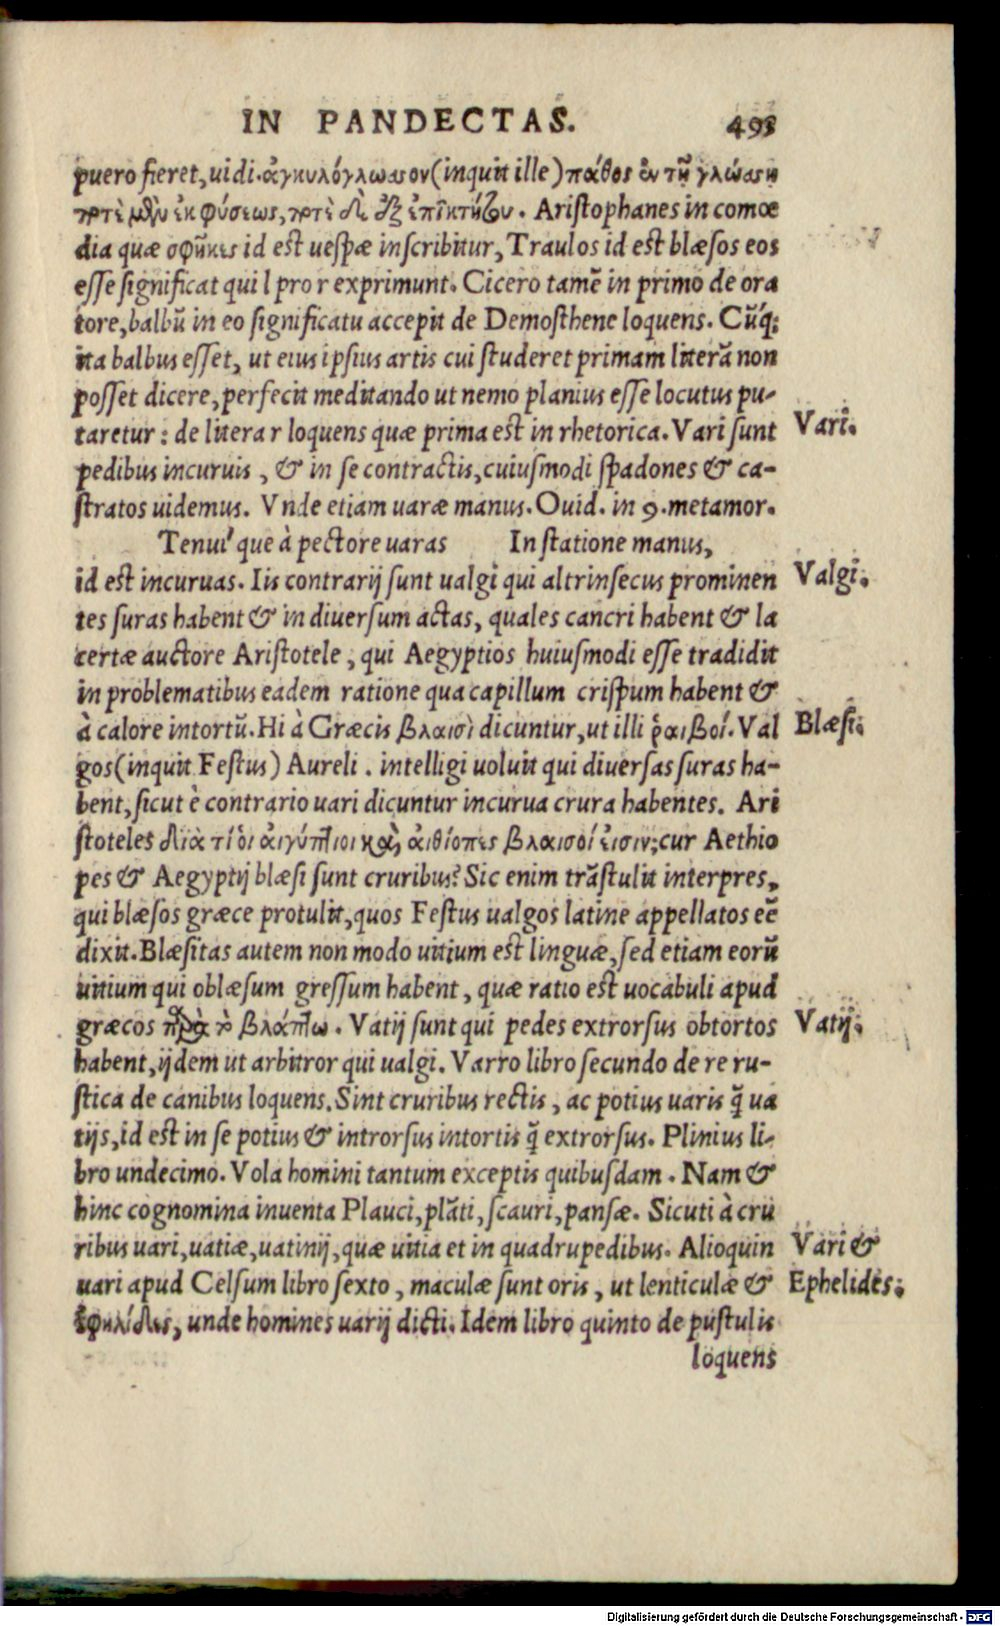 IN PANDECTAS. 493
puero fieret, uidi. ἀγκυλόγλωσσον (inquit ille) πάθος ἐν τῇ γλώσσῃ
ποτὲ μὲν ἐκ φύσεως, ποτὲ δὲ ἐξ ἐπικτήτου. Aristophanes in comœ
dia quæ σφῆκες id est uespæ inscribitur, Traulos id est blæsos eos
esse significat qui l pro r exprimunt. Cicero tamē in primo de ora
tore, balbū in eo significatu accepit de Demosthene loquens. Cūq;
ita balbus esset, ut eius ipsius artis cui studeret primam literā non
posset dicere, perfecit meditando ut nemo planius esse locutus pu-
taretur: de litera r loquens quæ prima est in rhetorica. Vari sunt
Vari.
pedibus incuruis, & in se contractis, cuiusmodi spadones & ca-
stratos uidemus. Vnde etiam uaræ manus. Ouid. in 9. metamor.
Tenui' que à pectore uaras In statione manus,
id est incuruas. Iis contrarij sunt ualgi qui altrinsecus prominen
Valgi.
tes suras habent & in diuersum actas, quales cancri habent & la
certæ auctore Aristotele, qui Aegyptios huiusmodi esse tradidit
in problematibus eadem ratione qua capillum crispum habent &
à calore intortū. Hi à Græcis βλαισοὶ dicuntur, ut illi ῥαιβοί. Val
Blæsi.
gos (inquit Festus) Aureli. intelligi uoluit qui diuersas suras ha-
bent, sicut è contrario uari dicuntur incurua crura habentes. Ari
stoteles διὰ τί οἱ αἰγύπτιοι καὶ αἰθίοπες βλαισοί εἰσιν; cur Aethio
pes & Aegyptij blæsi sunt cruribus? Sic enim trāstulit interpres,
qui blæsos græce protulit, quos Festus ualgos latine appellatos eē
dixit. Blæsitas autem non modo uitium est linguæ, sed etiam eorū
uitium qui oblæsum gressum habent, quæ ratio est uocabuli apud
græcos παρὰ τὸ βλάπτω. Vatij sunt qui pedes extrorsus obtortos
Vatij.
habent, ijdem ut arbitror qui ualgi. Varro libro secundo de re ru-
stica de canibus loquens. Sint cruribus rectis, ac potius uaris q̄ ua
tijs, id est in se potius & introrsus intortis q̄ extrorsus. Plinius li-
bro undecimo. Vola homini tantum exceptis quibusdam. Nam &
hinc cognomina inuenta Plauci, plāti, scauri, pansæ. Sicuti à cru
ribus uari, uatiæ, uatinij, quæ uitia et in quadrupedibus. Alioquin
Vari &
uari apud Celsum libro sexto, maculæ sunt oris, ut lenticulæ &
Ephelides.
ἐφηλίδες, unde homines uarij dicti. Idem libro quinto de pustulis
loquens
Digitalisierung gefördert durch die Deutsche Forschungsgemeinschaft - DFG